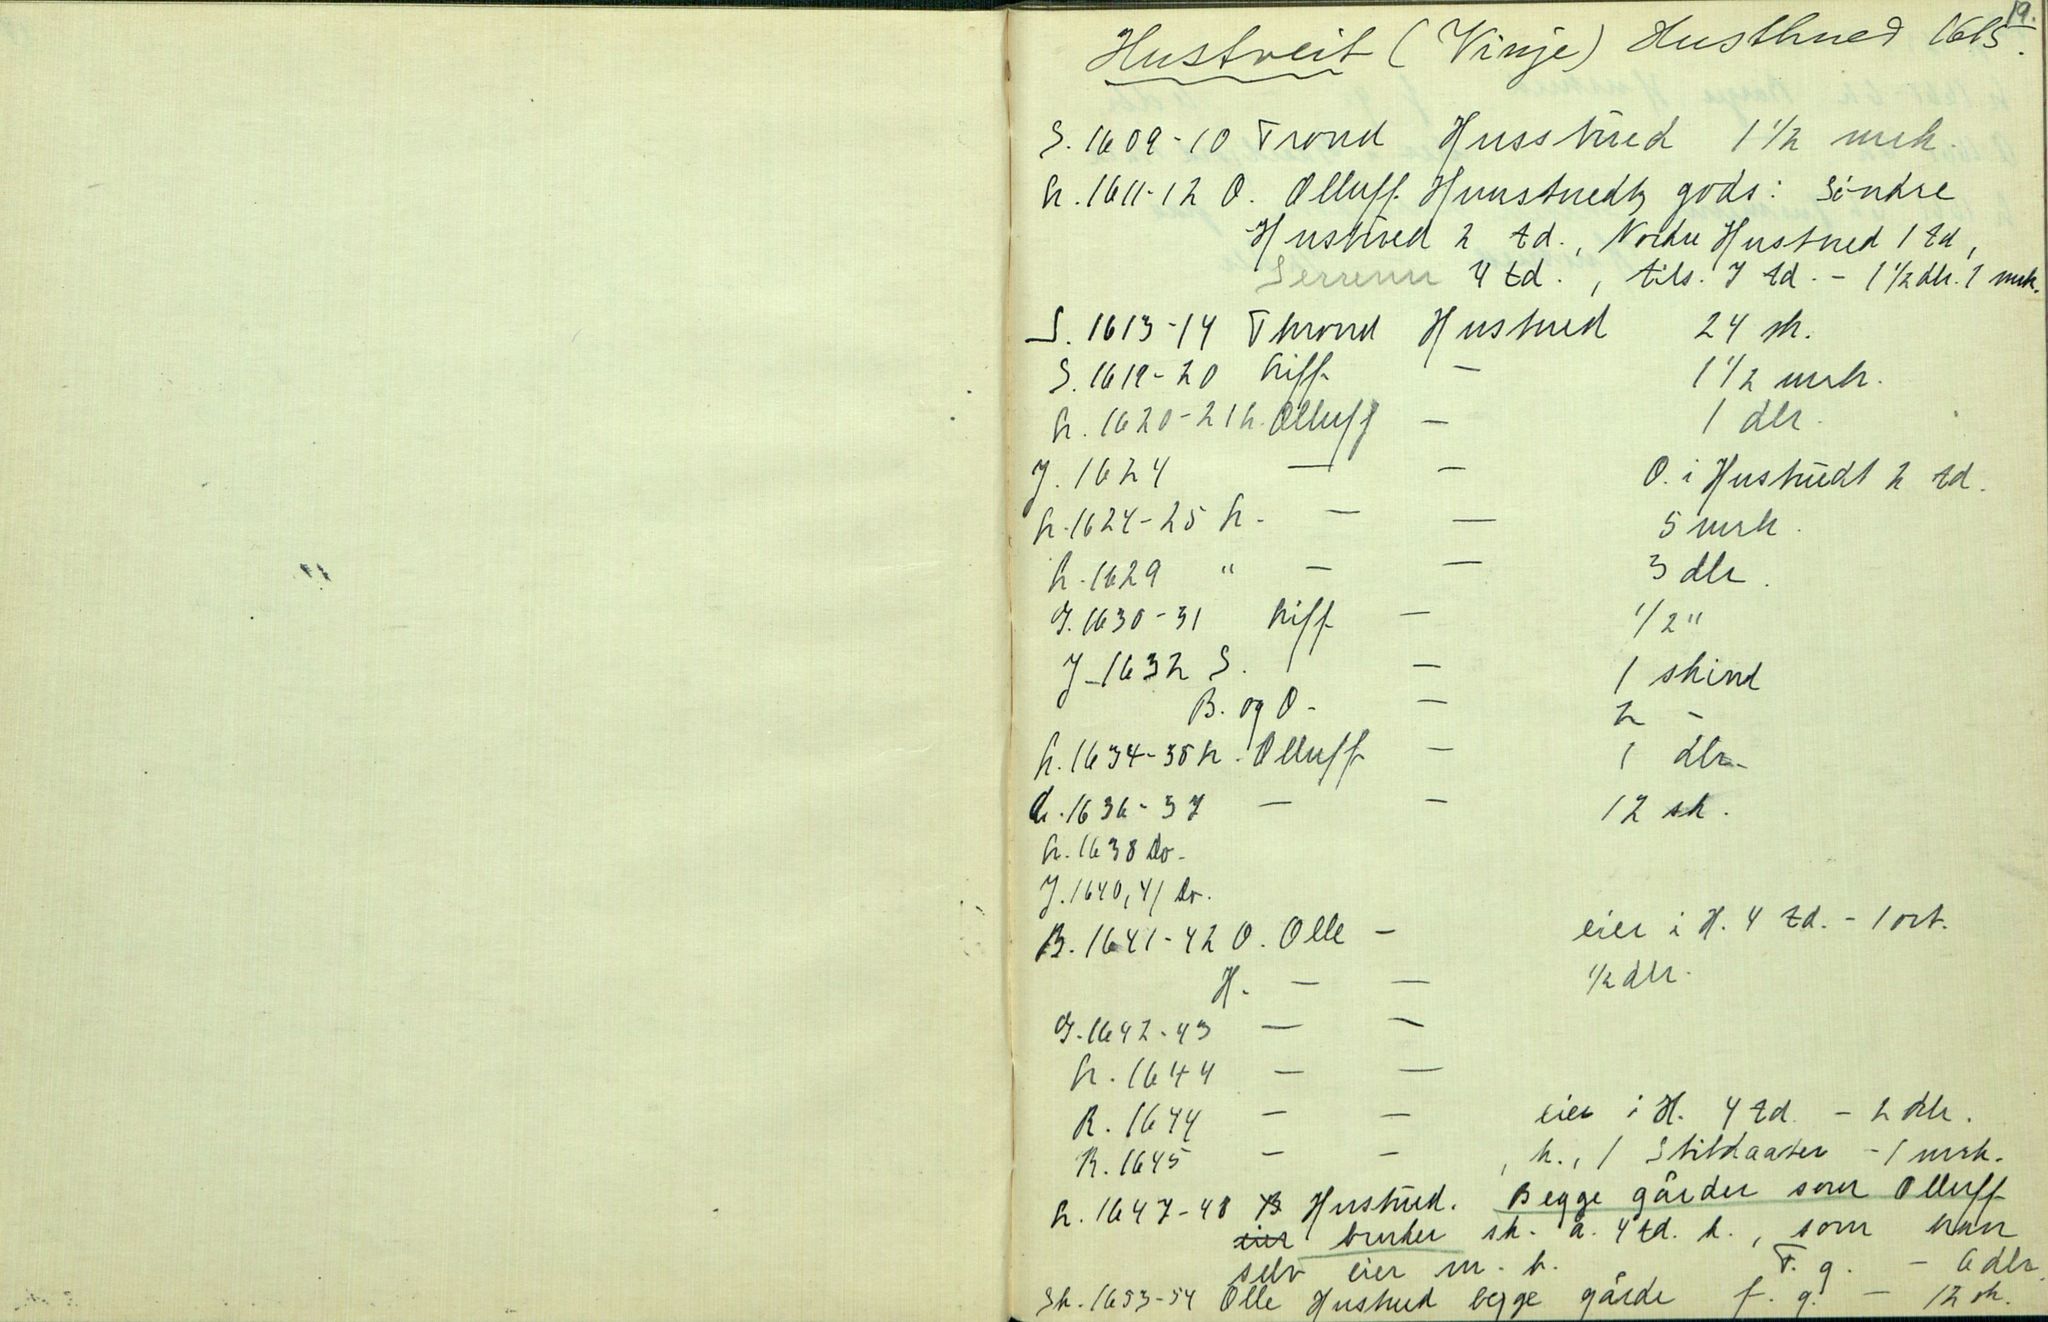 19.
Hustveit (Vinje) Husthued 1665.
S. 1609-10 Trond Husstued 1 1/2 mrk.
h. 1611-12 O. Olluff Huustuedtz gods: Söndre
Hustued 2 td., Nordre Hustued 1 td,
4 td., tils. 7 td. - 1 1/2 dlr. 1 mrk.
S. 1613-14 Thrond Hustued 24 sk.
S. 1619-20 Kiff - 1 1/2 mrk.
h. 1620-21 h. Olluff - 1 dlr.
J. 1624 - - O. i Hustuedt 2 td.
h. 1624-25 h. - - 5 mrk.
h. 1629 " - - 3 dlr.
J. 1630-31 Kiff - 1/2 "
J. 1632 S. - 1 skind
B. og O. - 2 -
h. 1634-35 h. Olluff - 1 dlr.
h. 1636-37 - - 12 sk.
h. 1638 Do.
J. 1640, 41 Do.
B. 1641-42 O. Olle - eier i H. 4 td. - 1 ort.
H. - - 1/2 dlr.
J. 1642-43 - -
h. 1644 - -
R. 1644 - - eier i H. 4 td. - 2 dlr.
R. 1645 - - , k., 1 - 1 mrk.
h. 1647-48 B Hustued. Begge gårder som Olluff
eier bruker sk. a. 4 td. k., som han
selv eier m. b. F. g. - 6 dlr.
Sk. 1653-54 Olle Hustued begge gårde f. g. - 12 sk.